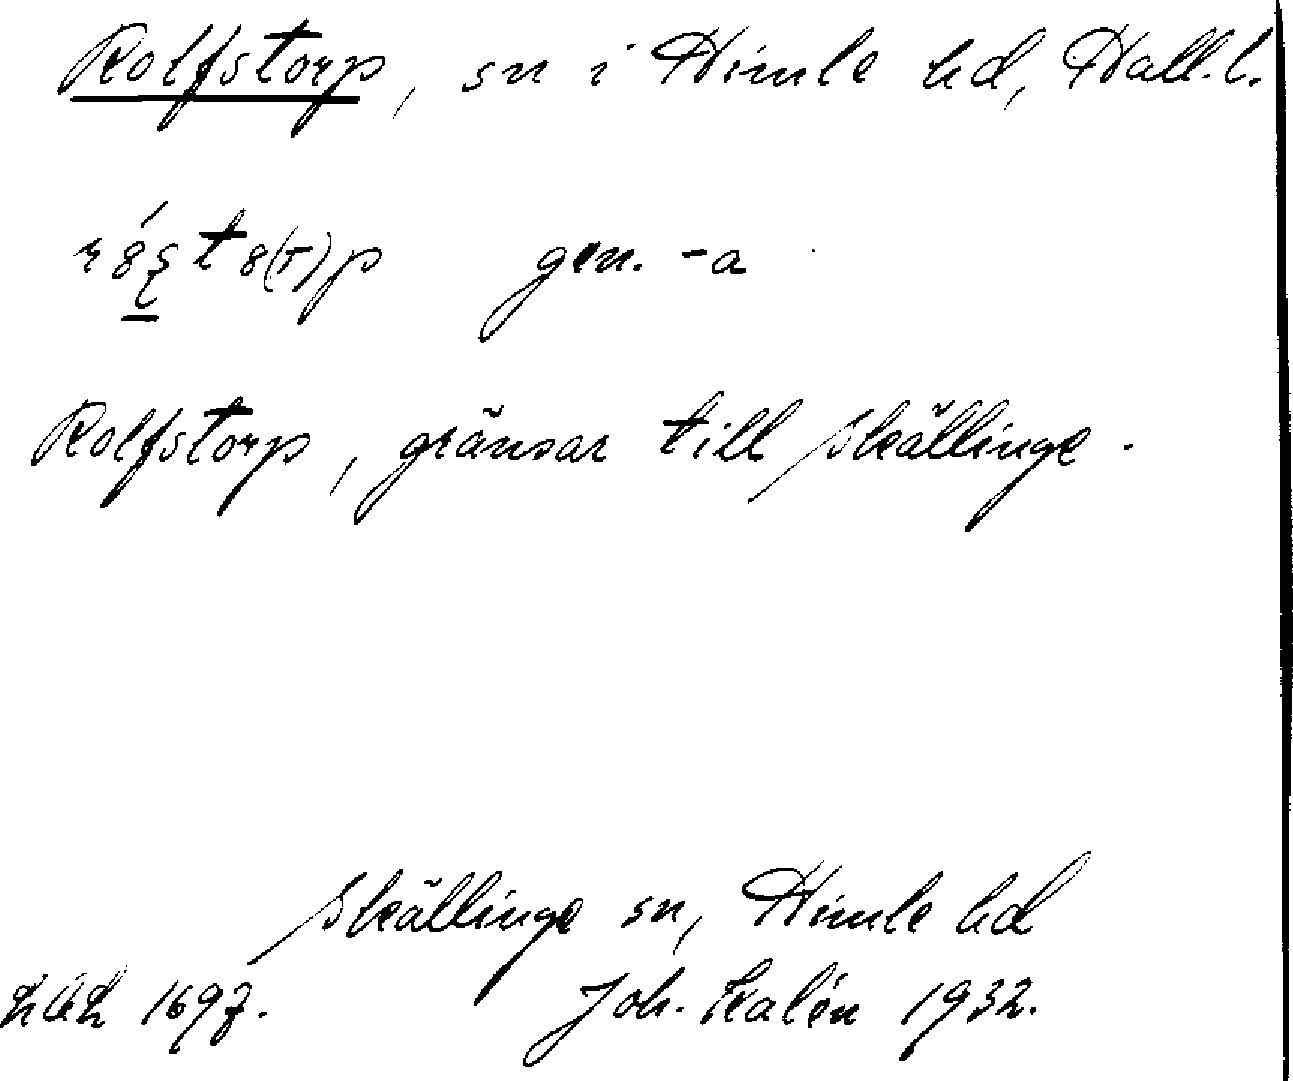 Rolfstorp, sn i Himle hd, Hall. l.
gen. -a
Rolfstorp, gränsar till Skällinge.
Skällinge sn, Himle hd
1697. Joh. Kalén 1932.